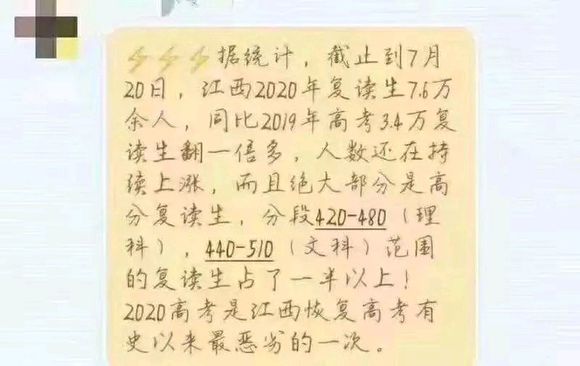 ⚡⚡⚡据统计，截止到7月
20日，江西2020年复读生7.6万
余人，同比2019年高考3.4万复
读生翻一倍多，人数还在持
续上涨，而且绝大部分是高
分复读生，分段420-480（理
科），440-510（文科）范围
的复读生占了一半以上！
2020高考是江西恢复高考有
史以来最恶劣的一次。